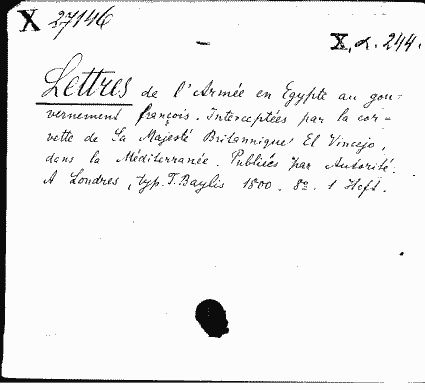 X 27146
X, d. 244.
Lettres de l'Armée en Egypte au gou-
vernement françois. Interceptées par la cor-
vette de Sa Majesté Britannique El Vincejo,
dans la Méditerranée. Publiées par Autorité.
A Londres, typ. T. Baylis 1800. 8º. 1 Heft.